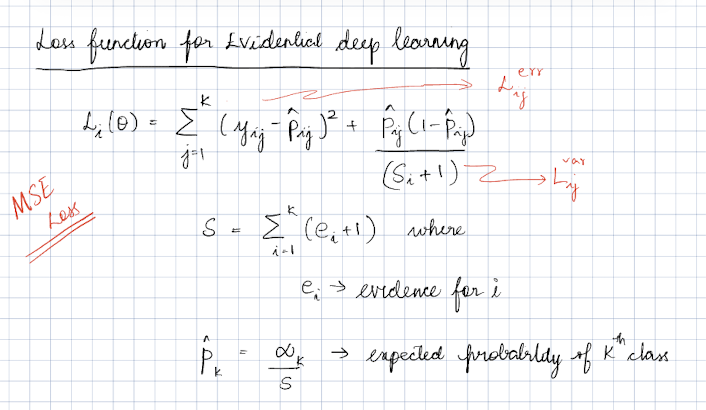 Loss function for Evidential deep learning
L_i(θ) = Σ_{j=1}^{K} (y_ij - p̂_ij)² + p̂_ij(1-p̂_ij) / (S_i+1)
L_ij^err
L_ij^var
MSE Loss
S = Σ_{i=1}^{K} (e_i+1) where
e_i → evidence for i
p̂_k = α_k / S → expected probability of K^th class